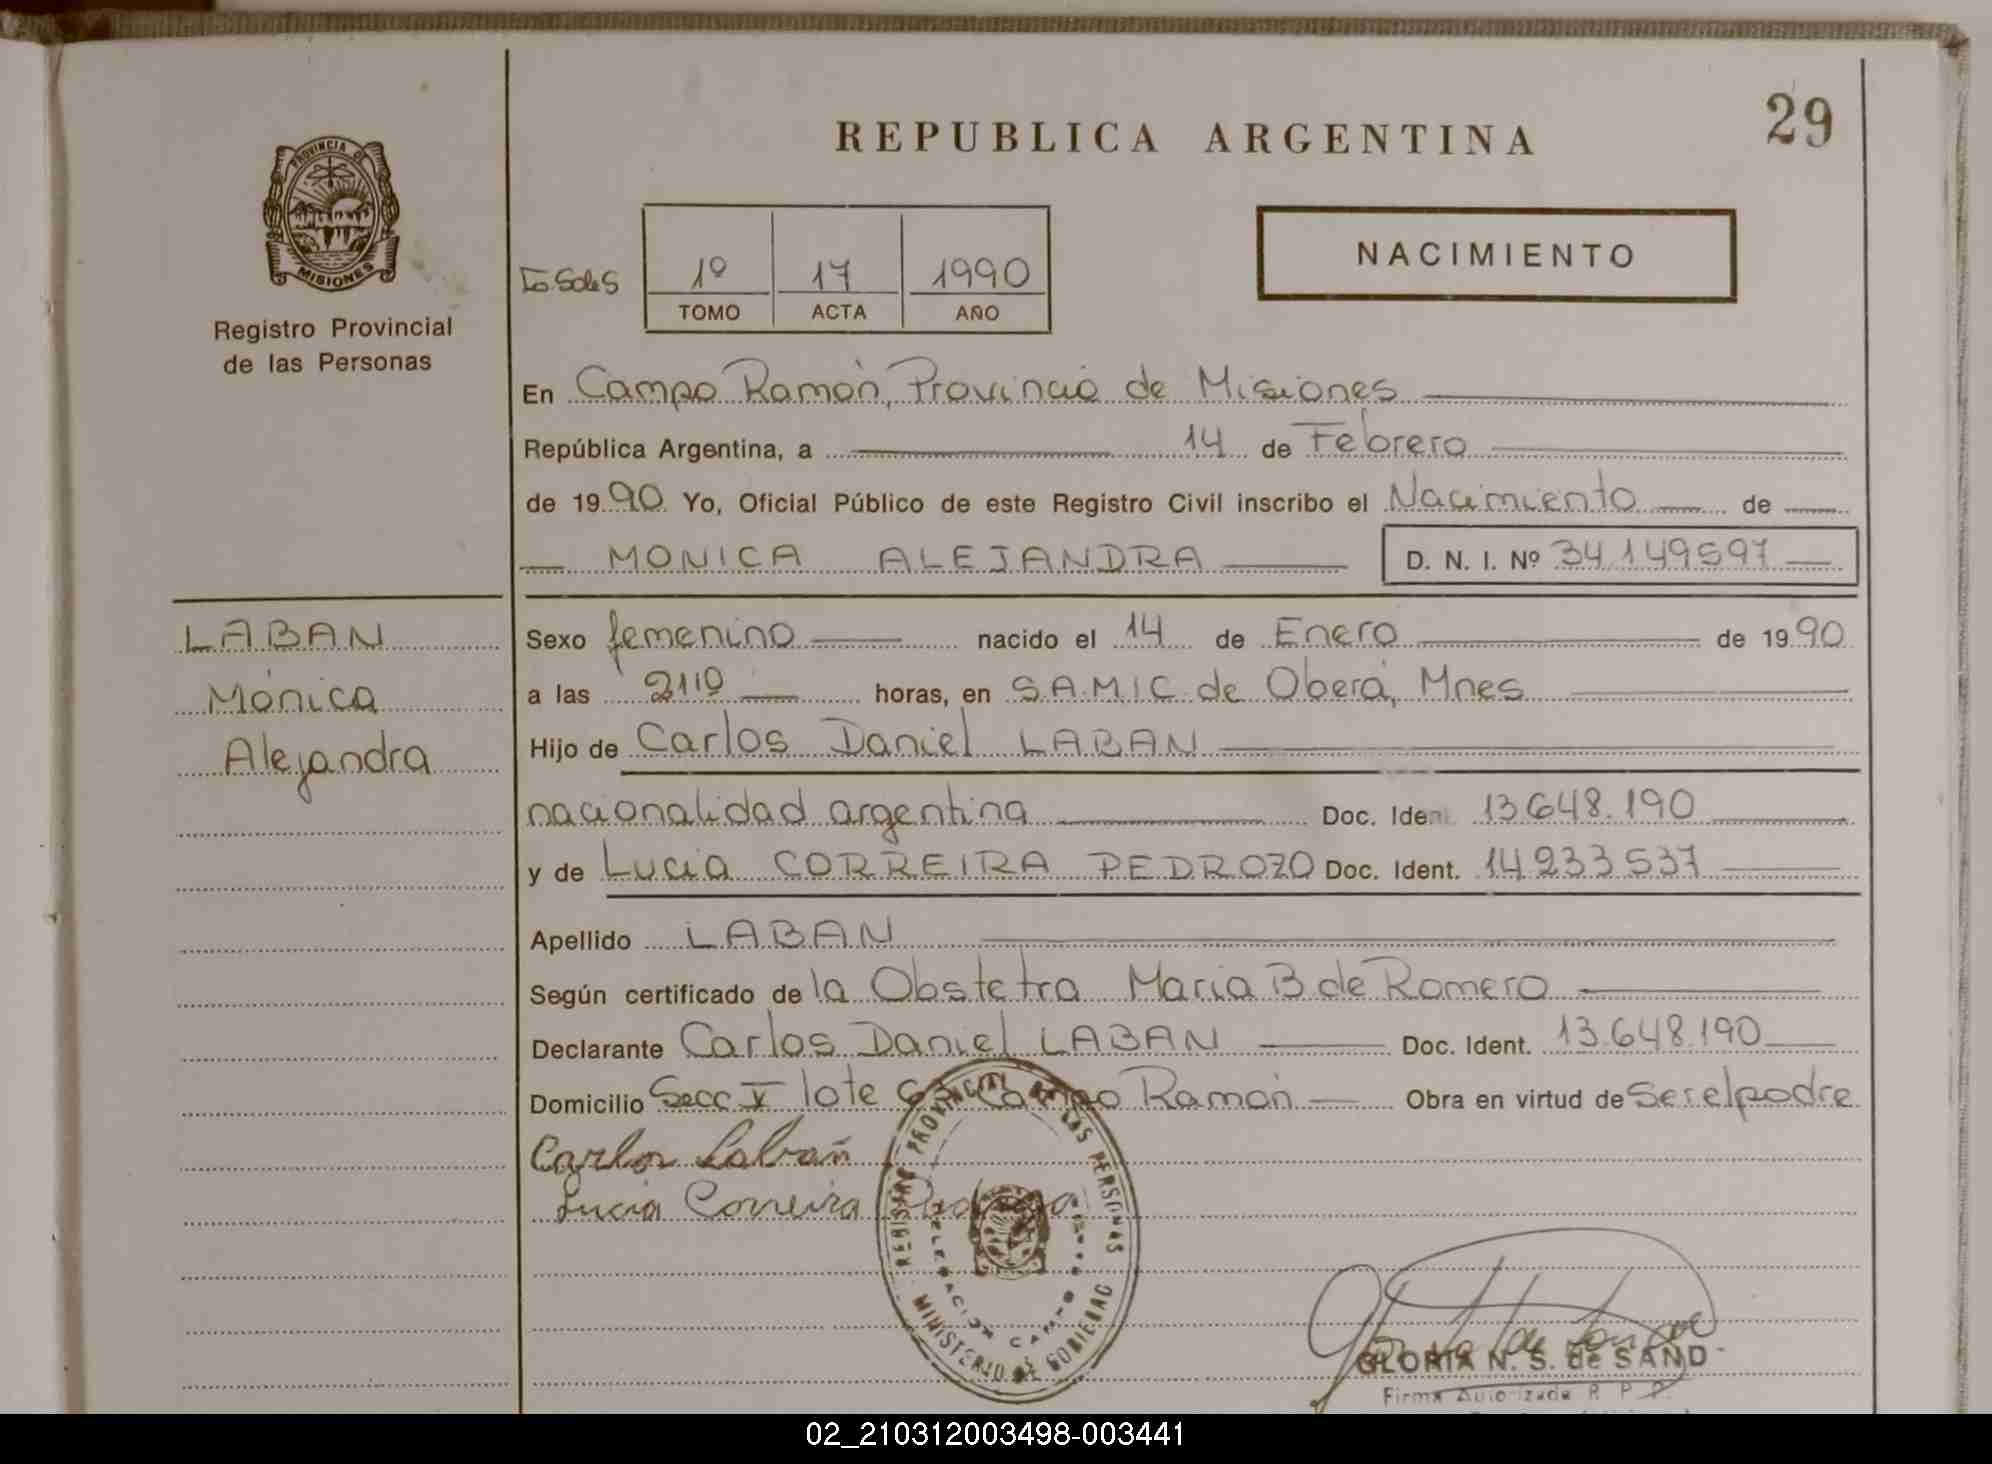 29
REPUBLICA ARGENTINA
PROVINCIA DE
MISIONES
Registro Provincial
de las Personas
1º 17 1990
TOMO ACTA AÑO
NACIMIENTO
En Campo Ramón, Provincia de Misiones
República Argentina, a 14 de Febrero
de 1990 Yo, Oficial Público de este Registro Civil inscribo el Nacimiento de
MONICA ALEJANDRA D. N. I. Nº 34.149597
LABAN
Mónica
Alejandra
Sexo femenino nacido el 14 de Enero de 1990
a las 2110 horas, en S.A.M.I.C. de Oberá, Mnes
Hijo de Carlos Daniel LABAN
nacionalidad argentina Doc. Ident. 13.648.190
y de Lucia CORREIRA PEDROZO Doc. Ident. 14.233.537
Apellido LABAN
Según certificado de la Obstetra Maria B de Romero
Declarante Carlos Daniel LABAN Doc. Ident. 13.648.190
Domicilio Secc V lote Campo Ramón Obra en virtud de Ser el padre
Carlos Labán
Lucia Correira Pedrozo
REGISTRO PROVINCIAL DE LAS PERSONAS
DELEGACION CAMPO
MINISTERIO DE GOBIERNO
GLORIA N. S. de SAND
Firma Autorizada R. P. P.
02_210312003498-003441